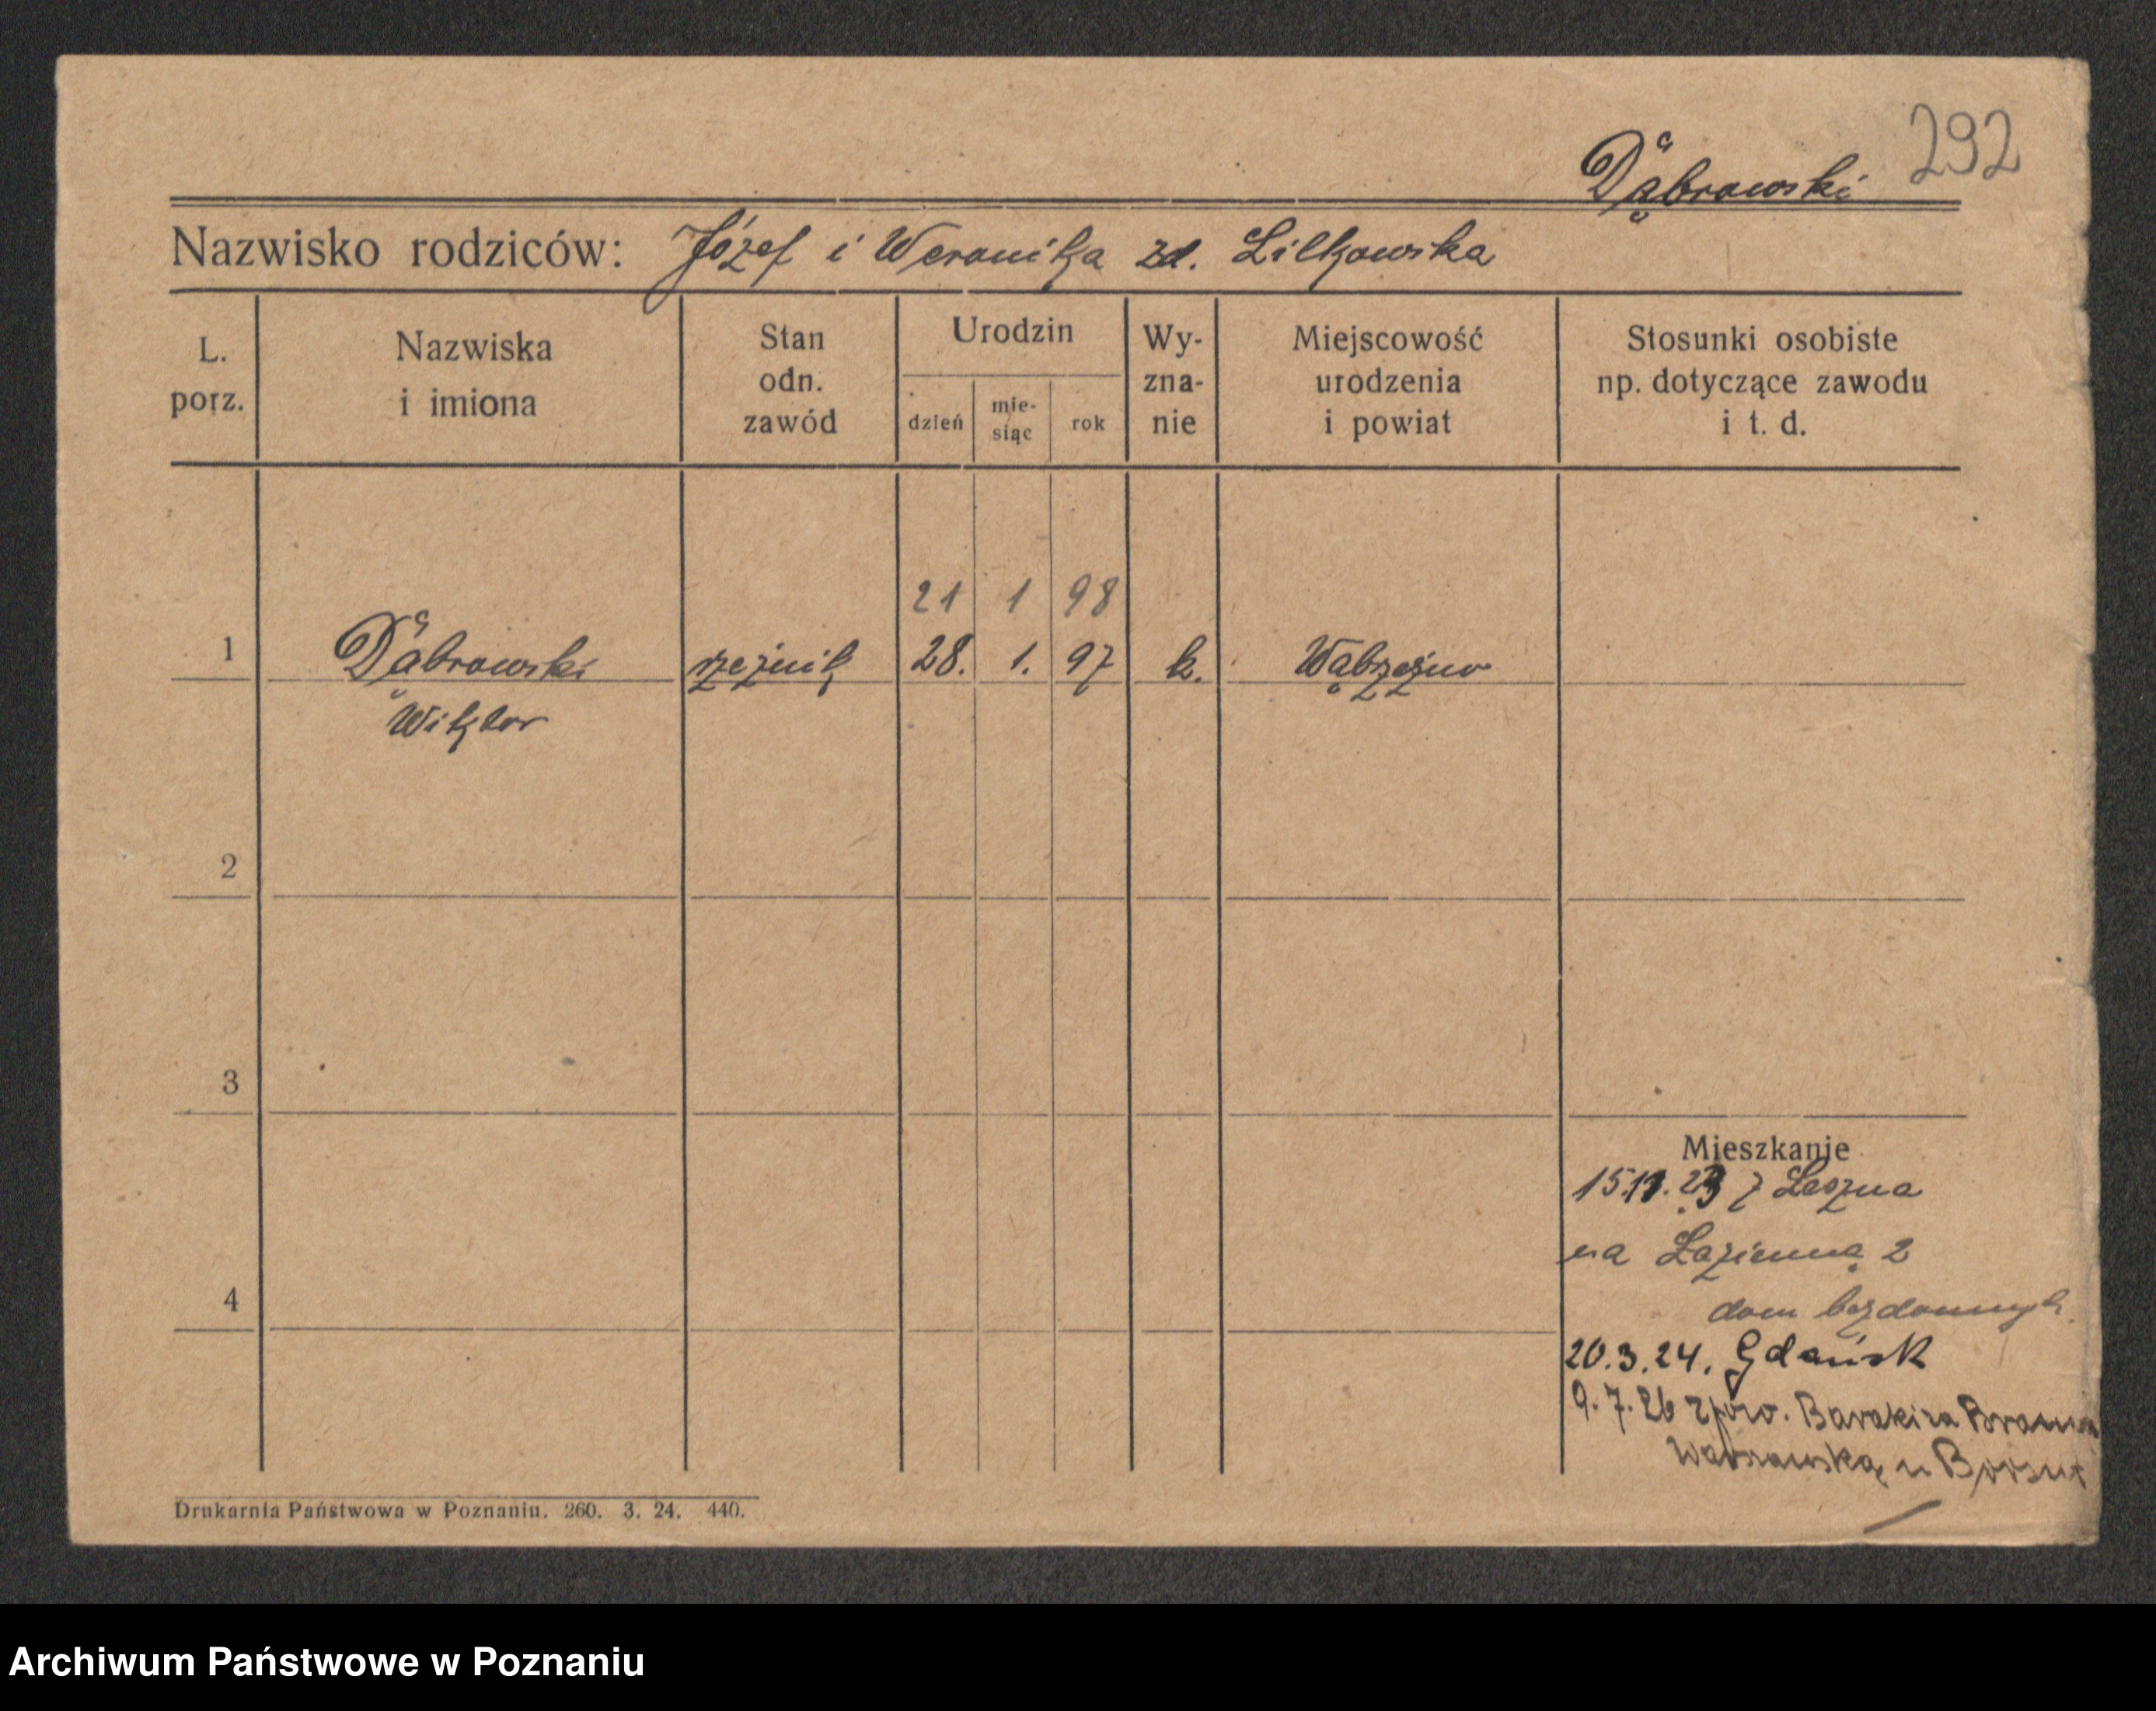 292
Dąbrowski
Nazwisko rodziców: Józef i Weronika zd. Lilkowska
L. porz.
Nazwiska i imiona
Stan odn. zawód
Urodzin
dzień
mie-siąc
rok
Wy-zna-nie
Miejscowość urodzenia i powiat
Stosunki osobiste np. dotyczące zawodu i t. d.
21 1 98
1 Dąbrowski rzeźnik 28. 1. 97 k. Wąbrzeźno
Wiktor
2
3
4
Mieszkanie
15.11.23 z Leszna
na Łazienną 2
dom bezdomnych.
20.3.24. Gdańsk
9.7.26 zpow. Baraki za Bramą
Warszawską u
Drukarnia Państwowa w Poznaniu. 260. 3. 24. 440.
Archiwum Państwowe w Poznaniu